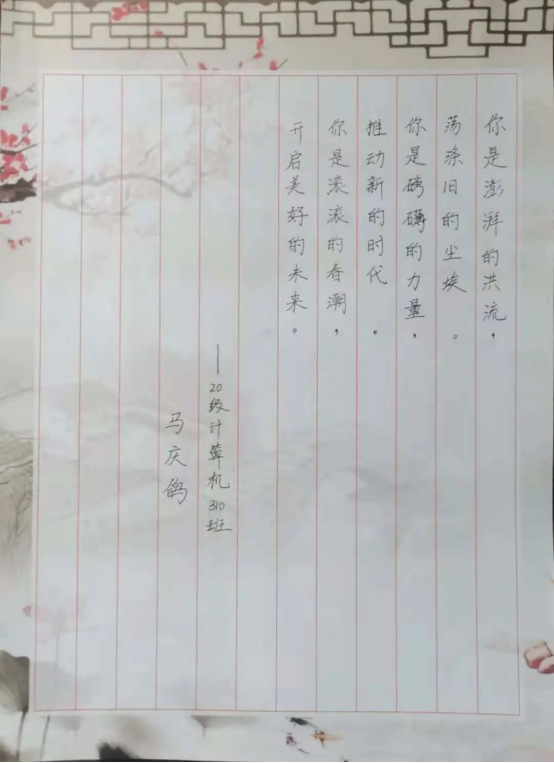 你是澎湃的洪流，
荡涤旧的尘埃。
你是磅礴的力量，
推动新的时代，
你是滚滚的春潮，
开启美好的未来。
—20级计算机310班
马庆鸽